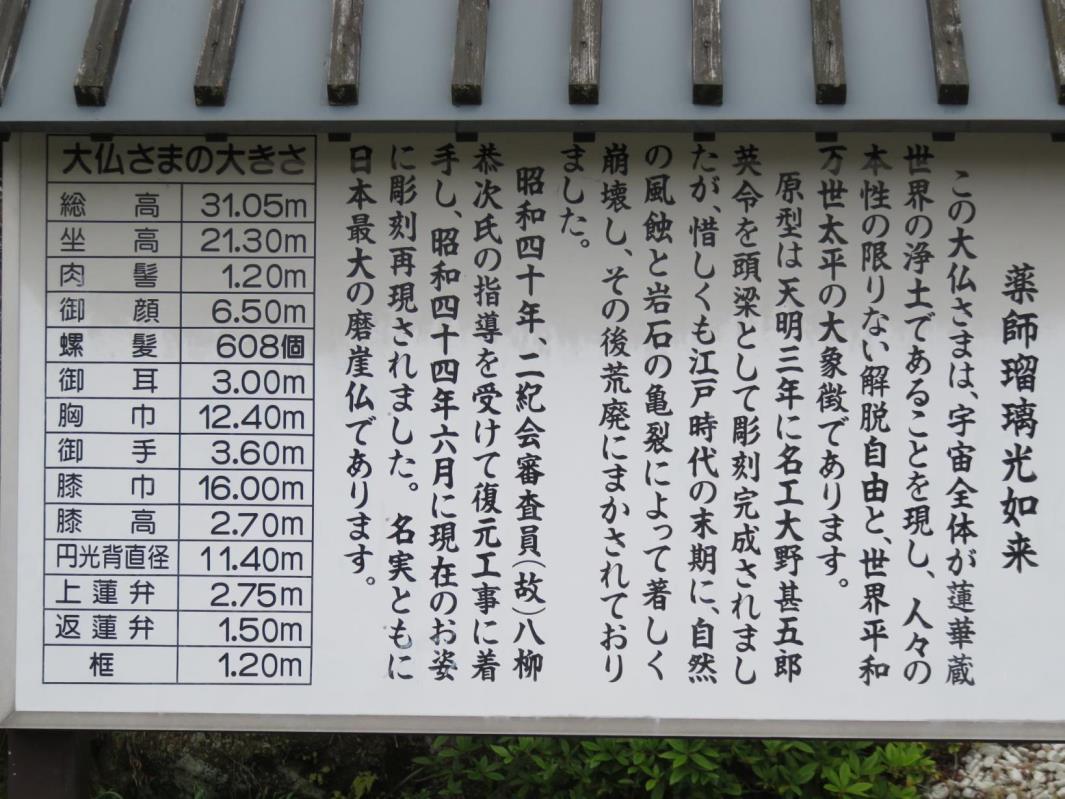 薬師瑠璃光如来
この大仏さまは、宇宙全体が蓮華蔵
世界の浄土であることを現し、人々の
本性の限りない解脱自由と、世界平和
万世太平の大象徴であります。
原型は天明三年に名工大野甚五郎
英令を頭梁として彫刻完成されまし
たが、惜しくも江戸時代の末期に、自然
の風蝕と岩石の亀裂によって著しく
崩壊し、その後荒廃にまかされており
ました。
昭和四十年、二紀会審査員(故)八柳
恭次氏の指導を受けて復元工事に着
手し、昭和四十四年六月に現在のお姿
に彫刻再現されました。名実ともに
日本最大の磨崖仏であります。
大仏さまの大きさ
総高 31.05m
坐高 21.30m
肉髻 1.20m
御顔 6.50m
螺髪 608個
御耳 3.00m
胸巾 12.40m
御手 3.60m
膝巾 16.00m
膝高 2.70m
円光背直径 11.40m
上蓮弁 2.75m
返蓮弁 1.50m
框 1.20m